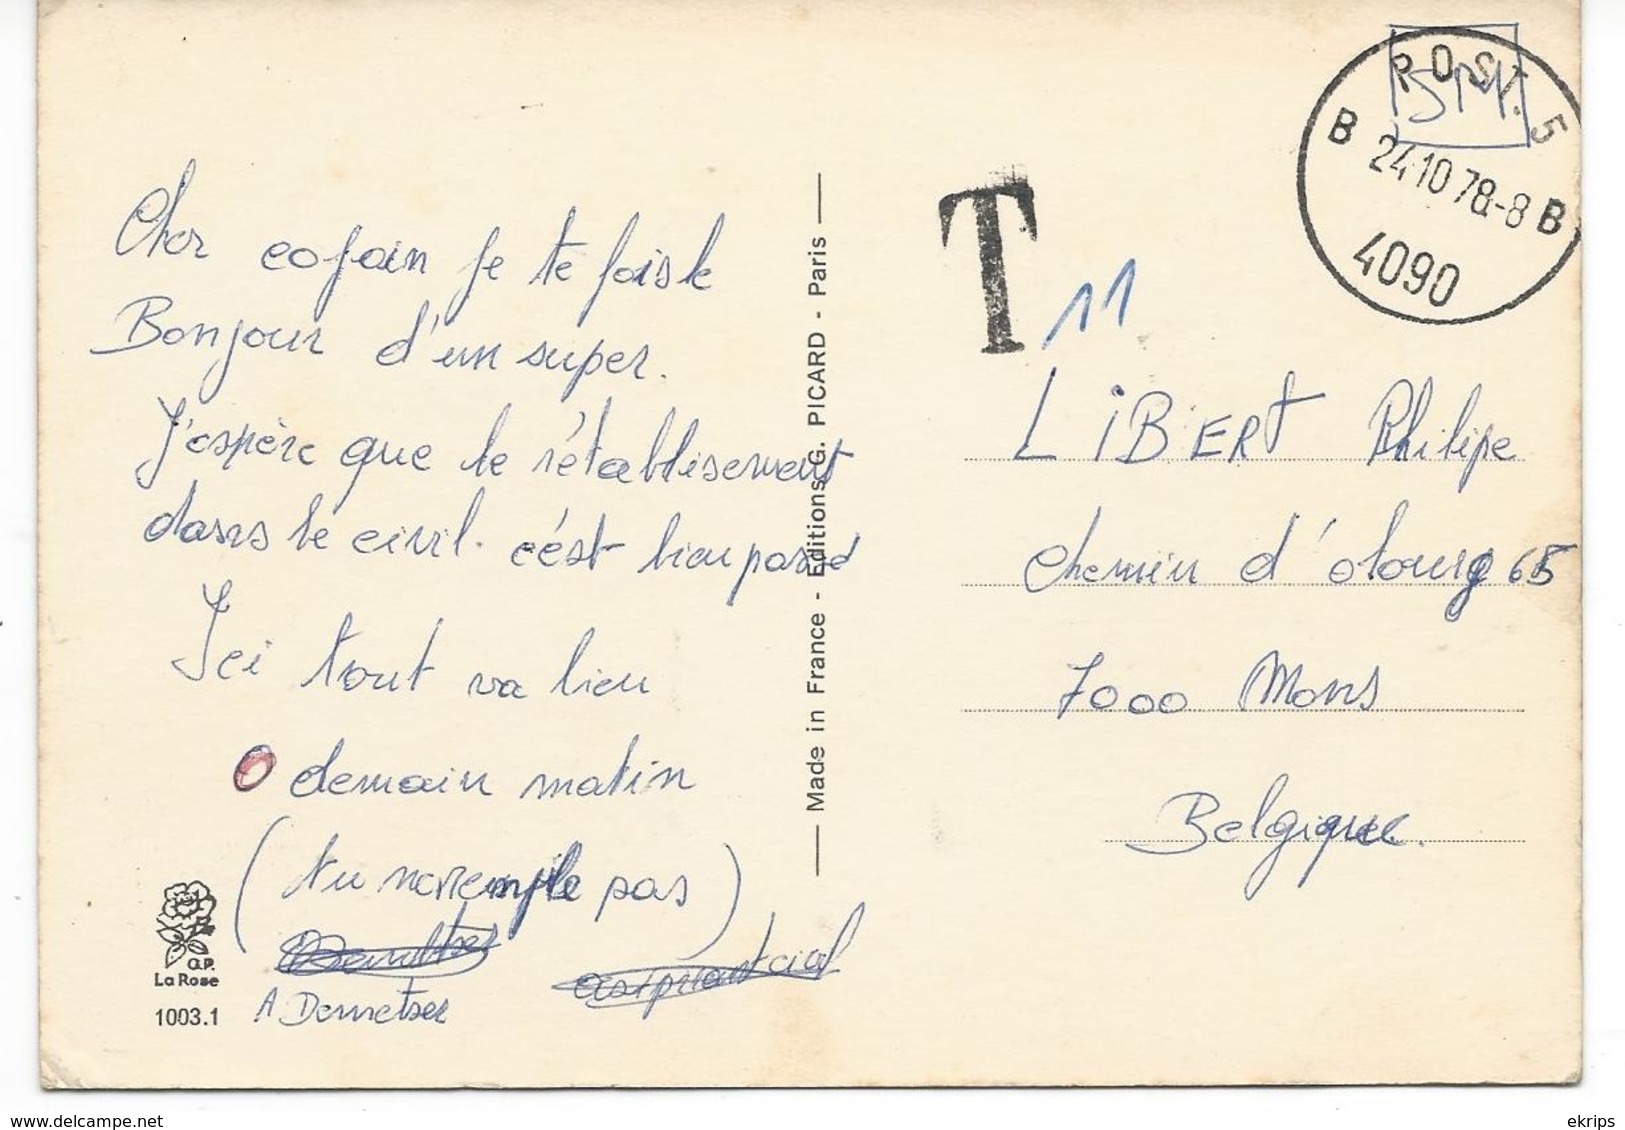 Cher copain je te fais le
Bonjour d'un super.
J'espère que le rétablisement
dans le civil. c'ést bien passé
Ici tout va bien
0 demain matin
(tu ne remple pas)
A Demetser
La Rose
1003.1
Made in France - Editions G. PICARD - Paris
T 11
POST. 5
B 24-10 78-8 B
4090
LiBERT Philipe
chemin d' 65
7000 Mons
Belgique.
www.delcampe.net
ekrips